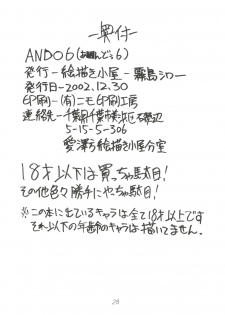 －奥付－
AND06(あんど6)
発行－絵描き小屋－霧島シロー
発行日－2002.12.30
印刷－(有)ニモ印刷工房
連絡先－千葉県千葉市美浜区磯辺
5-15-5-306
愛澤方絵描き小屋分室
18才以下は買っちゃ駄目!
その他色々勝手にやっちゃ駄目!
※この本に出ているキャラは全て18才以上です
それ以下の年齢のキャラは描いてません。
28